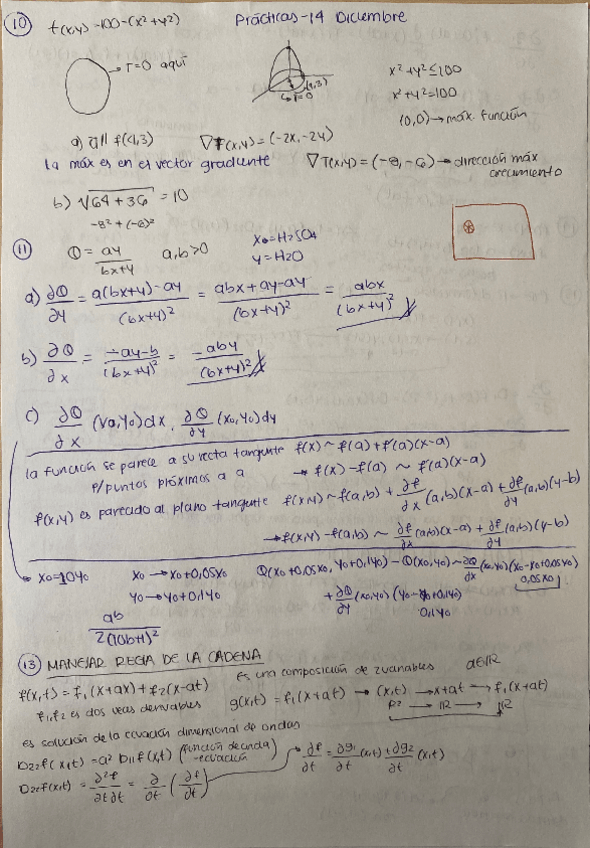 Prácticas - 14 Diciembre
10) f(x,y) = 100 - (x² + y²)
T=0 aquí
(4,3)
T=0
x² + y² ≤ 100
x² + y² = 100
(0,0) → máx. función
a) f(4,3) ∇T(x,y) = (-2x, -2y)
la máx es en el vector gradiente ∇T(x,y) = (-8, -6) → dirección máx crecimiento
b) √(64 + 36) = 10
-8² + (-6)²
11) Q = ay/(bx+y) a,b>0
x0 = H2SO4
y = H2O
a) ∂Q/∂y = (a(bx+y) - ay)/(bx+y)² = (abx + ay - ay)/(bx+y)² = abx/(bx+y)²
b) ∂Q/∂x = (-ay·b)/(bx+y)² = -aby/(bx+y)²
c) ∂Q/∂x (x0,y0) dx, ∂Q/∂y (x0,y0) dy
la función se parece a su recta tangente f(x) ~ f(a) + f'(a)(x-a)
p/puntos próximos a a → f(x) - f(a) ~ f'(a)(x-a)
f(x,y) es parecido al plano tangente f(x,y) ~ f(a,b) + ∂f/∂x (a,b)(x-a) + ∂f/∂y (a,b)(y-b)
→ f(x,y) - f(a,b) ~ ∂f/∂x (a,b)(x-a) + ∂f/∂y (a,b)(y-b)
x0 = 10y0 x0 → x0 + 0,05x0 Q(x0 + 0,05x0, y0 + 0,1y0) - Q(x0,y0) ~ ∂Q/∂x (x0,y0)(x0 - x0 + 0,05x0)
0,05x0
y0 → y0 + 0,1y0 + ∂Q/∂y (x0,y0)(y0 - y0 + 0,1y0)
0,1y0
ab/2(10b+1)²
13) MANEJAR REGLA DE LA CADENA
es una composición de 2 variables a∈ℝ
f(x,t) = f1(x+at) + f2(x-at)
g(x,t) = f1(x+at) → (x,t) → x+at → f1(x+at)
f1, f2 es dos veces derivables
ℝ² → ℝ → ℝ
es solución de la ecuación dimensional de ondas
D22f(x,t) = a² D11f(x,t) (función de onda - ecuación)
∂f/∂t = ∂g1/∂t (x,t) + ∂g2/∂t (x,t)
D22f(x,t) = ∂²f/∂t∂t = ∂/∂t (∂f/∂t)